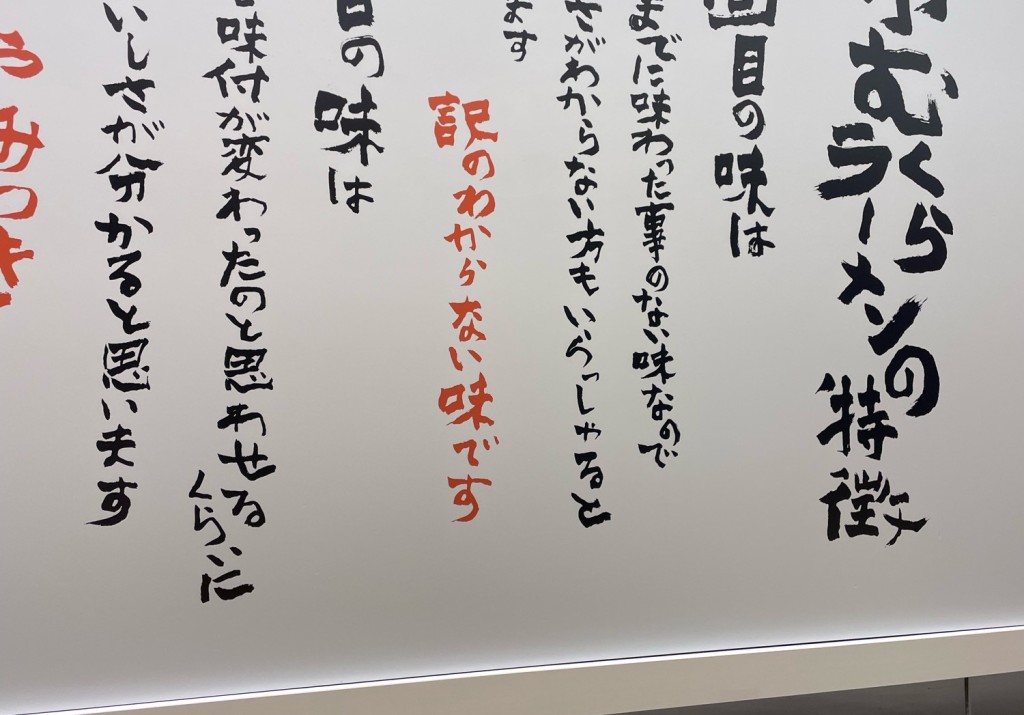 むくら
ラーメンの特徴
回目の味は
までに味わった事のない味なので
さがわからない方もいらっしゃると
ます
訳のわからない味です
目の味は
味付が変わったのと思わせる
くらいに
いしさが分かると思います
うみつき